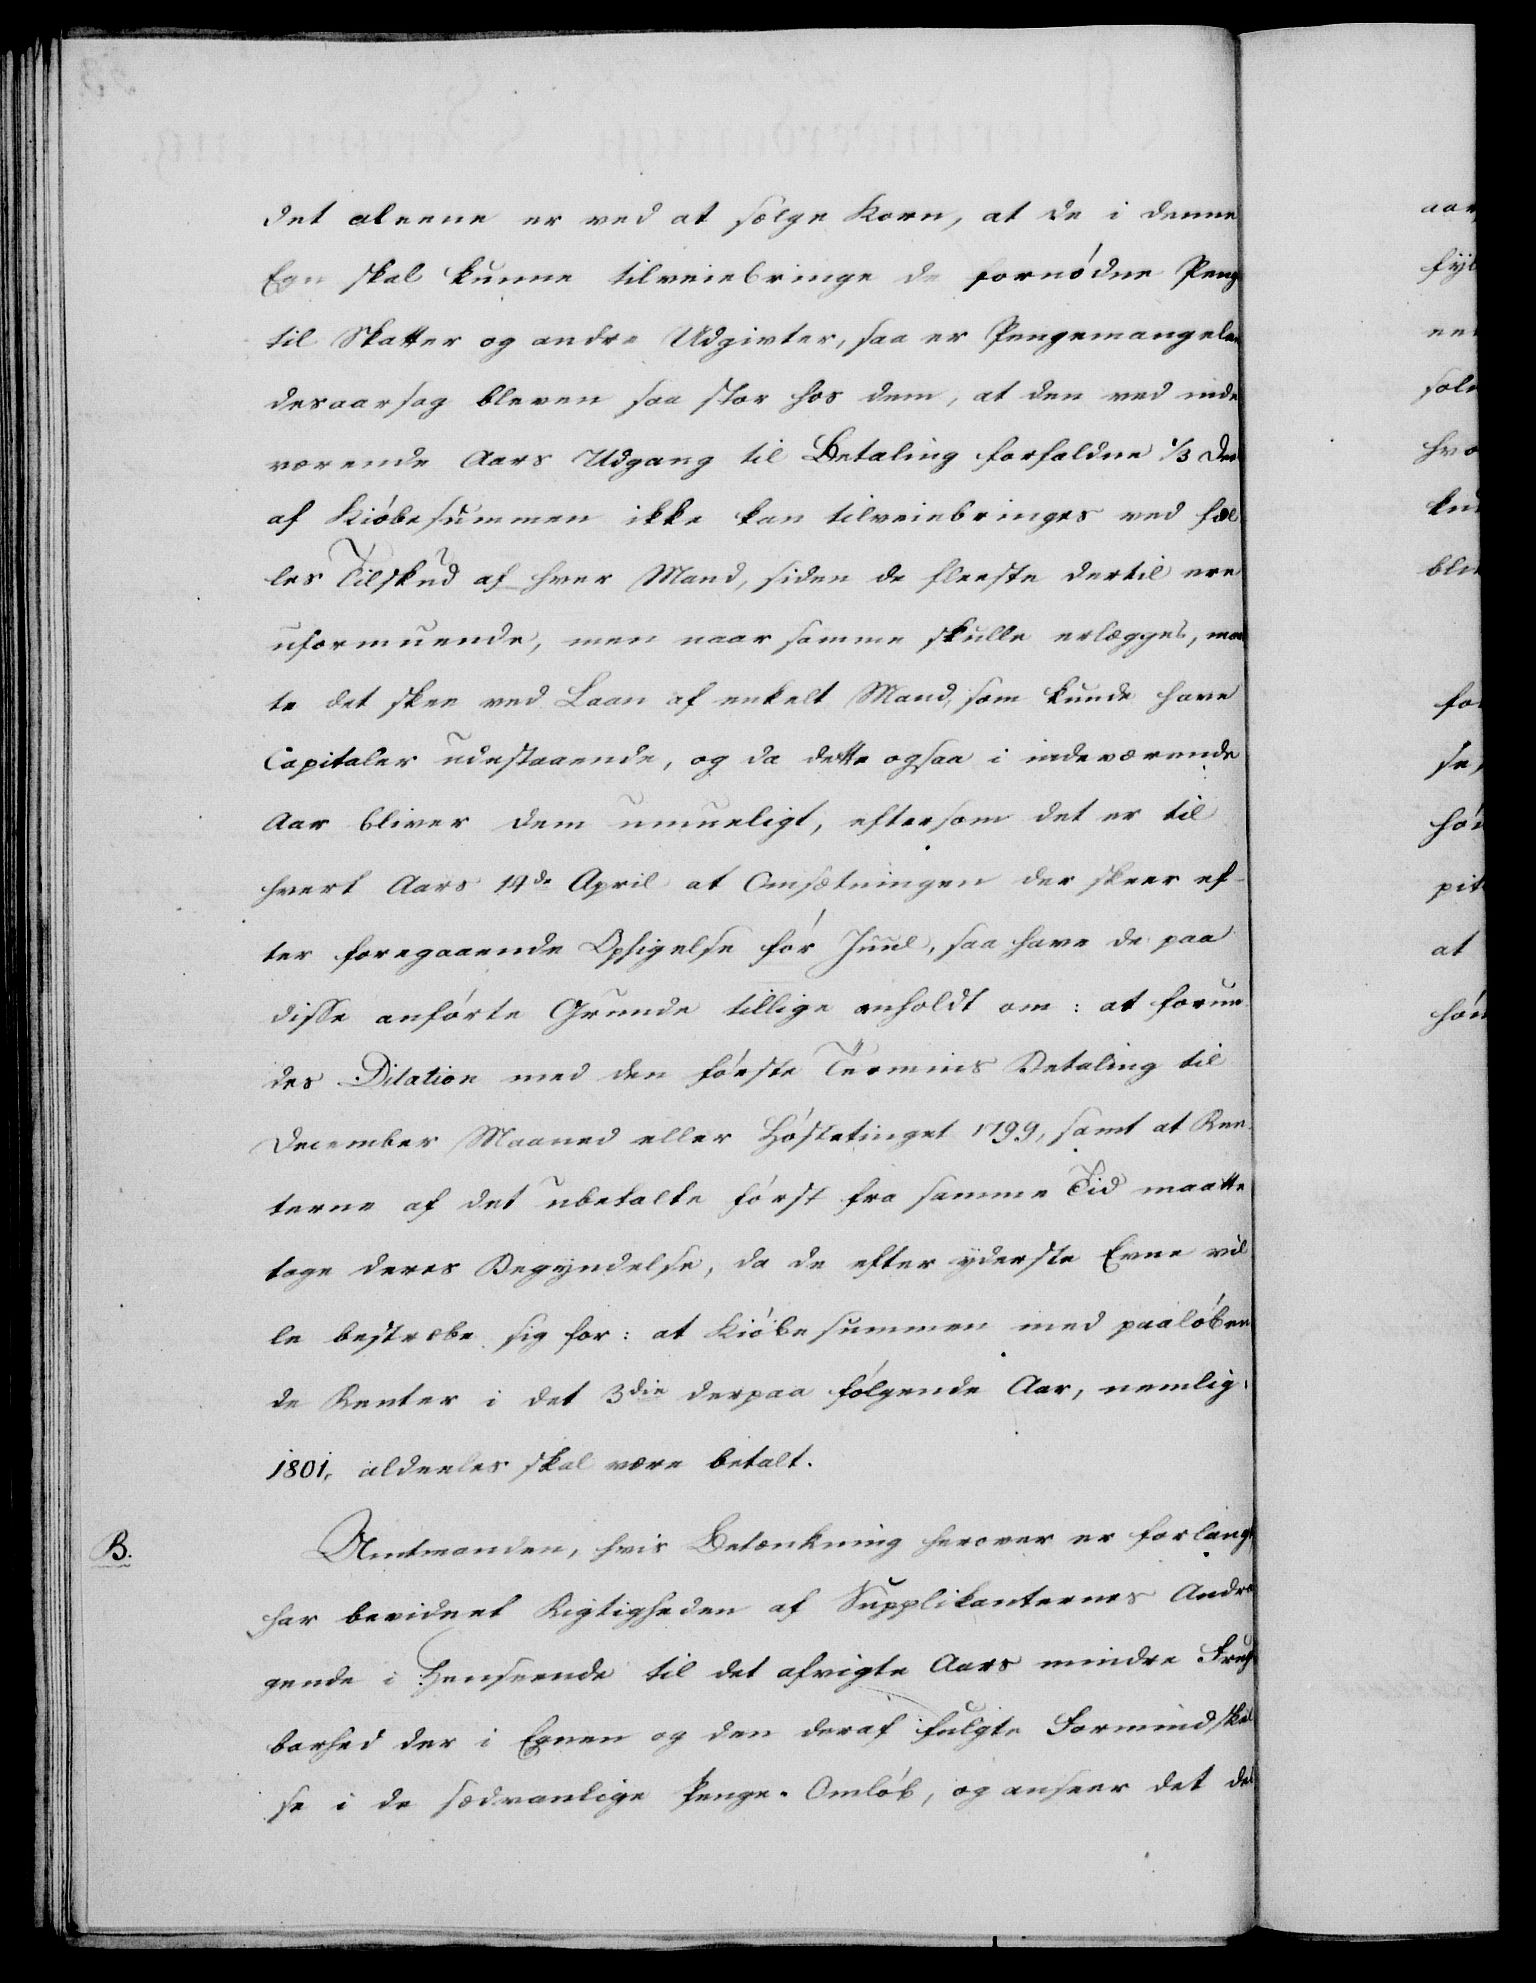 det aleene er ved at sælge Korn, at de i denne
Egn skal kunne tilveiebringe de fornødne Peng
til Skatter og andre Udgivter, saa er Pengemangelen
desaarsag bleven saa stor hos dem, at den ved inde
værende Aars Udgang til Betaling forfaldne 1/3 Deel
af Kiøbesummen ikke kan tilveiebringes ved fæl
les Tilskud af hver Mand, siden de fleeste dertil ere
uformuende, men naar samme skulle erlægges, maa
te det skee ved Laan af enkelt Mand, som kunde have
Capitaler udestaaende, og da dette ogsaa i indeværende
Aar bliver dem umueligt, eftersom det er til
hvert Aars 14de April at Omsætningen der skeer ef-
ter foregaaende Opsigelse før Juul, saa have de paa
disse anførte Grunde tillige anholdt om: at forun
des Dilation med den første Termins Betaling til
December Maaned eller Høstetinget 1799, samt at Ren-
terne af det ubetalte først fra samme Tid maatte
tage deres Begyndelse, da de efter yderste Evne vil
le bestræbe sig for: at Kiøbesummen med paaløben
de Renter i det 3die derpaa følgende Aar, nemlig
1801, aldeeles skal være betalt.
B.
Amtmanden, hvis Betænkning herover er forlangt
har bevidnet Rigtigheden af Supplikanternes Andra
gende i Henseende til det afvigte Aars mindre Frugt
barhed der i Egnen og den deraf fulgte Formindskel
se i de sædvanlige Penge-Omløb, og anseer det des
aar
fyl
sole
hvo
bli
for
se,
pit
at